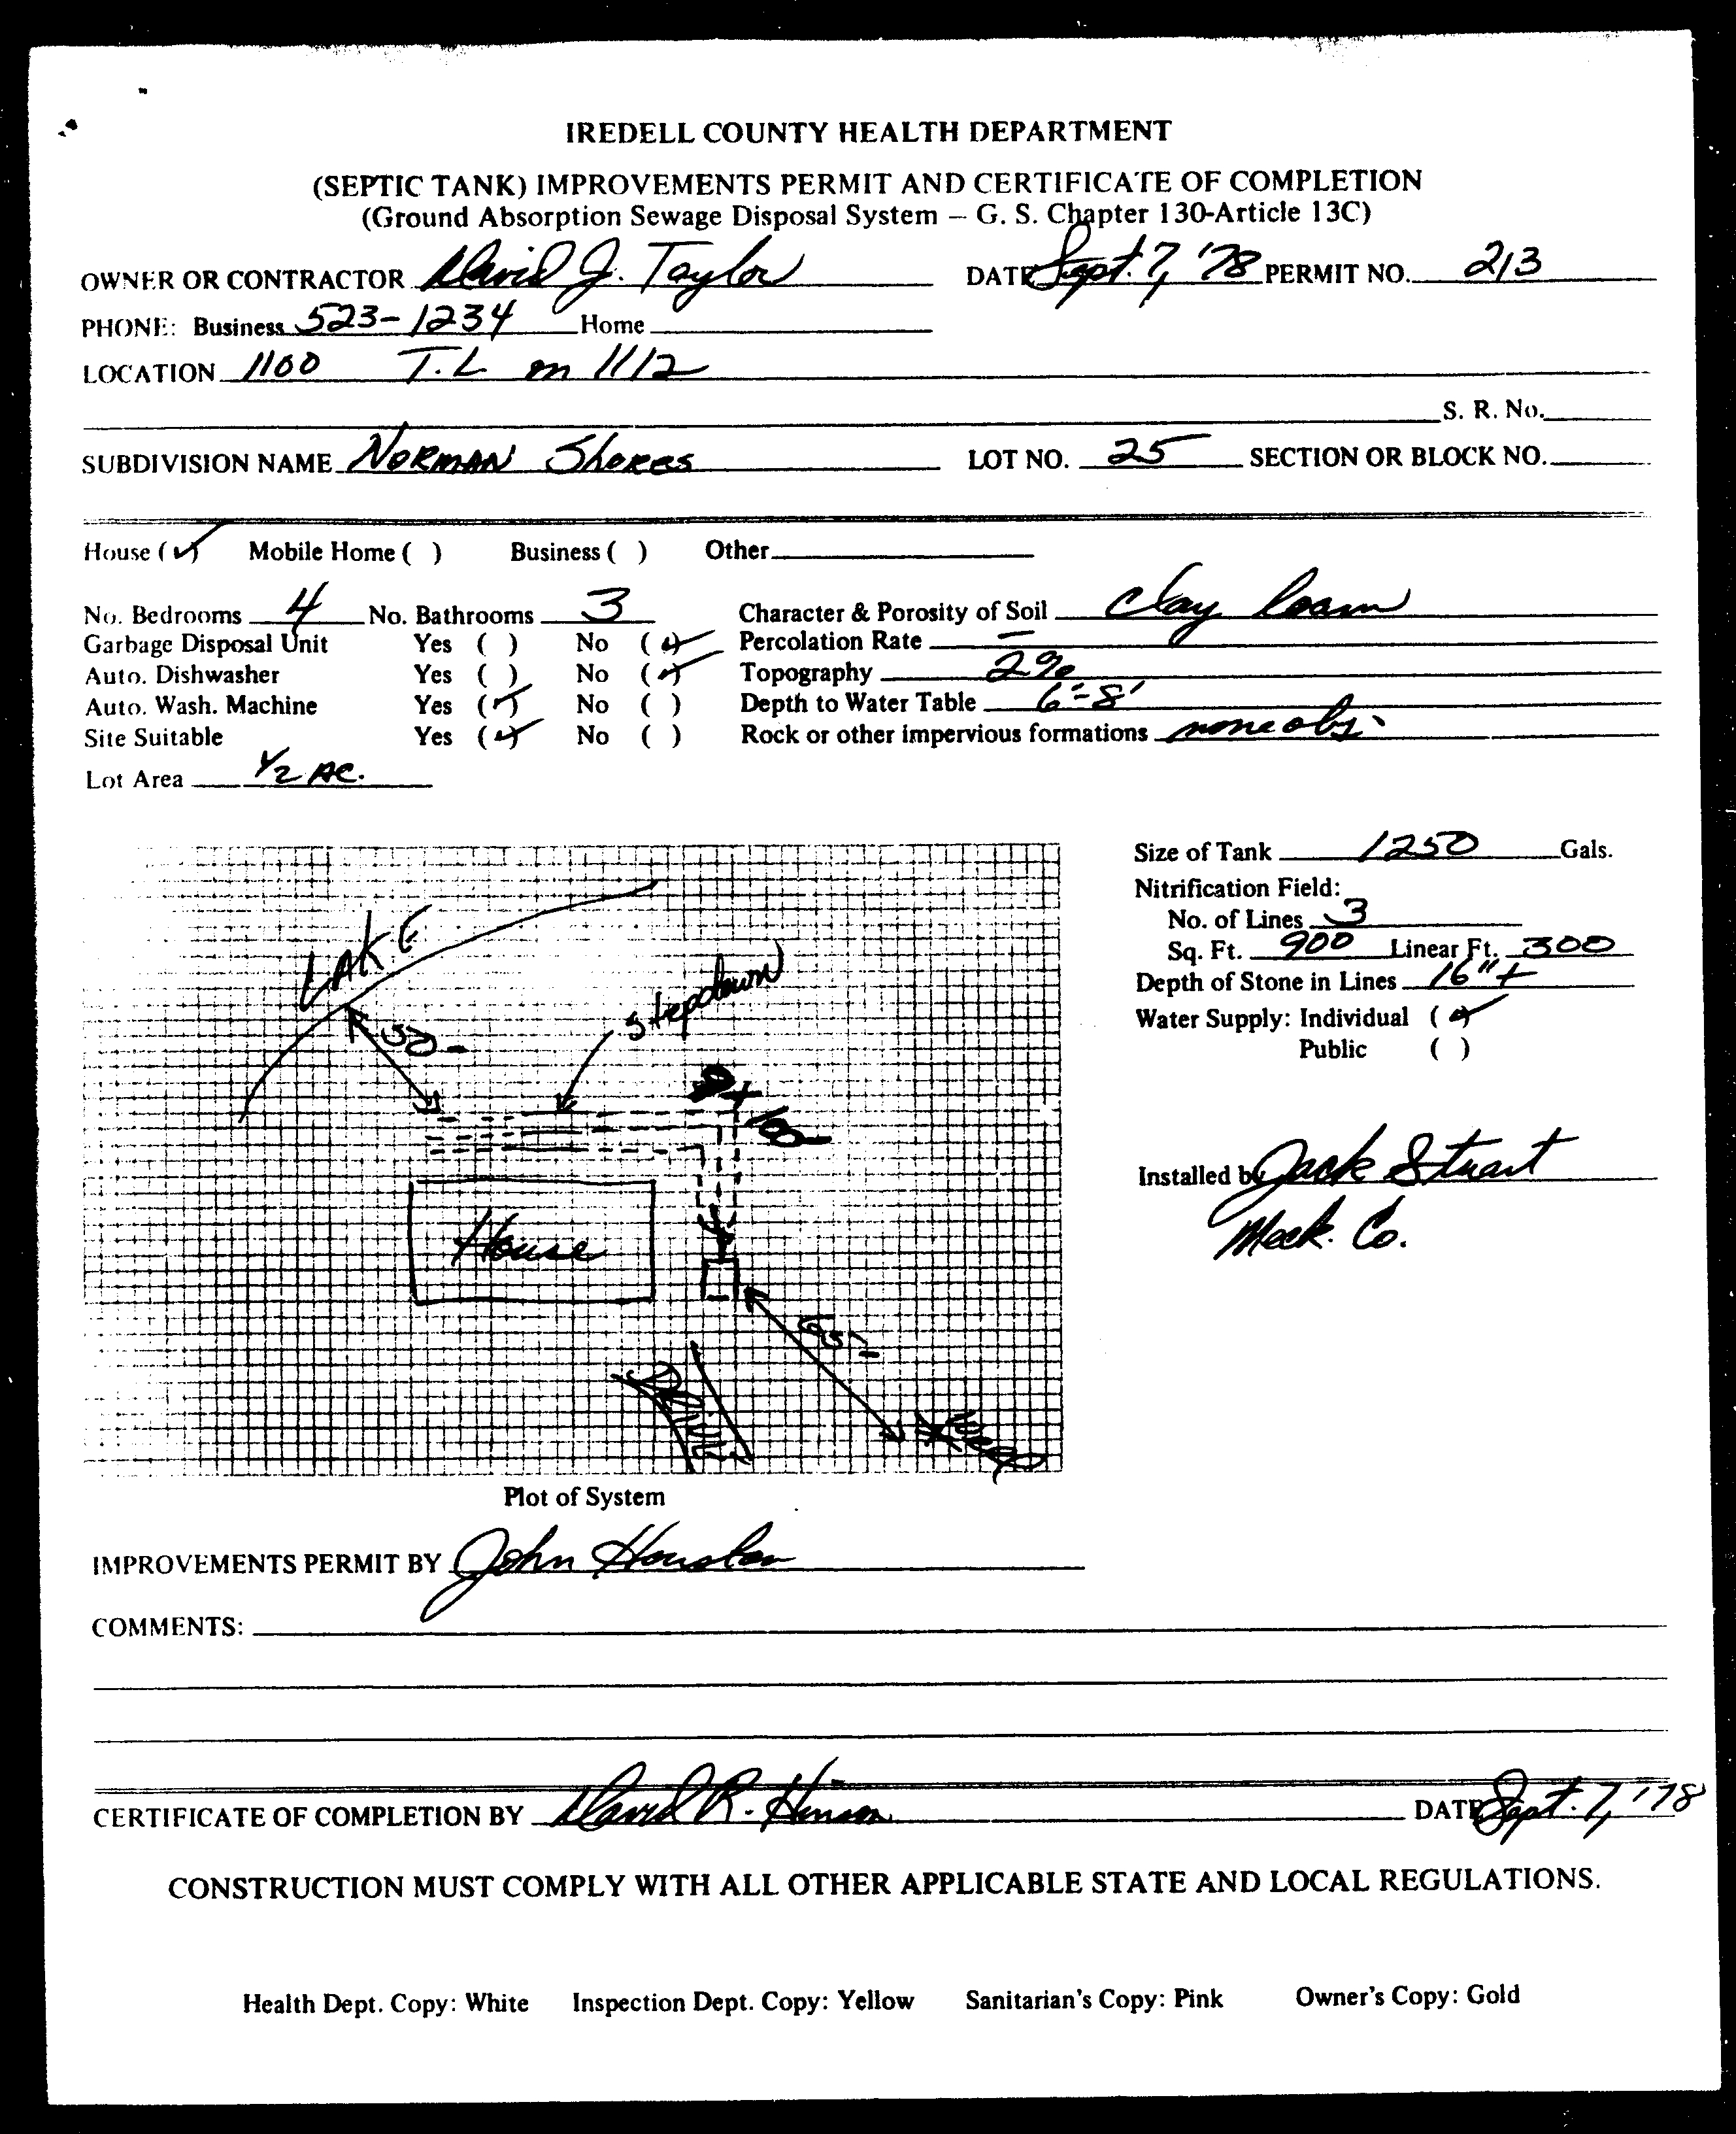 IREDELL COUNTY HEALTH DEPARTMENT
(SEPTIC TANK) IMPROVEMENTS PERMIT AND CERTIFICATE OF COMPLETION
(Ground Absorption Sewage Disposal System – G. S. Chapter 130-Article 13C)
OWNER OR CONTRACTOR David J. Taylor DATE Sept. 7, '78 PERMIT NO. 213
PHONE: Business 523-1234 Home
LOCATION 1100 T.L on 1112
S. R. No.
SUBDIVISION NAME NORMAN Shores LOT NO. 25 SECTION OR BLOCK NO.
House (✓) Mobile Home ( ) Business ( ) Other
No. Bedrooms 4 No. Bathrooms 3 Character & Porosity of Soil Clay loam
Garbage Disposal Unit Yes ( ) No (✓) Percolation Rate —
Auto. Dishwasher Yes ( ) No (✓) Topography 2%
Auto. Wash. Machine Yes (✓) No ( ) Depth to Water Table 6'-8'
Site Suitable Yes (✓) No ( ) Rock or other impervious formations none obs.
Lot Area 1/2 AC.
Size of Tank 1250 Gals.
Nitrification Field:
No. of Lines 3
Sq. Ft. 900 Linear Ft. 300
Depth of Stone in Lines 16"+
Water Supply: Individual (✓)
Public ( )
LAKE
stepdown
50
100
House
65'
Drive
Installed by Jack Stuart
Meck. Co.
Plot of System
IMPROVEMENTS PERMIT BY John Houston
COMMENTS:
CERTIFICATE OF COMPLETION BY David R. Hinson DATE Sept. 7, '78
CONSTRUCTION MUST COMPLY WITH ALL OTHER APPLICABLE STATE AND LOCAL REGULATIONS.
Health Dept. Copy: White Inspection Dept. Copy: Yellow Sanitarian's Copy: Pink Owner's Copy: Gold